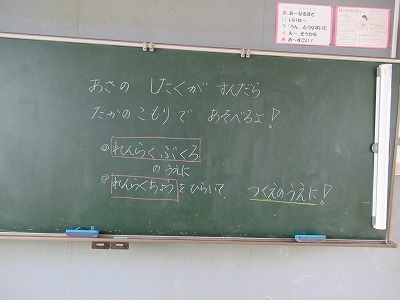 あさの したくが すんだら
たかのこもりで あそべるよ!
① れんらくぶくろ
のうえに
② れんらくちょう をひらいて、 つくえのうえに!
あ~なるほど
いいね~
「うん」とうなずいて
え~、そうかな
お~すごい!